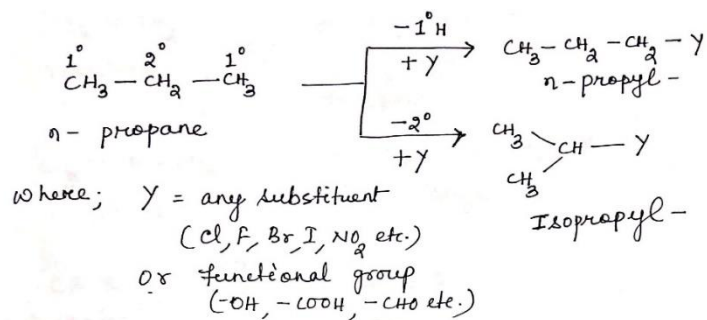 1° 2° 1°
CH₃ — CH₂ — CH₃
n - propane
-1° H
+ Y
CH₃ - CH₂ - CH₂ - Y
n - propyl -
-2°
+Y
CH₃
CH — Y
CH₃
Isopropyl -
where; Y = any substituent
(Cl, F, Br, I, NO₂ etc.)
Or functional group
(-OH, -COOH, -CHO etc.)